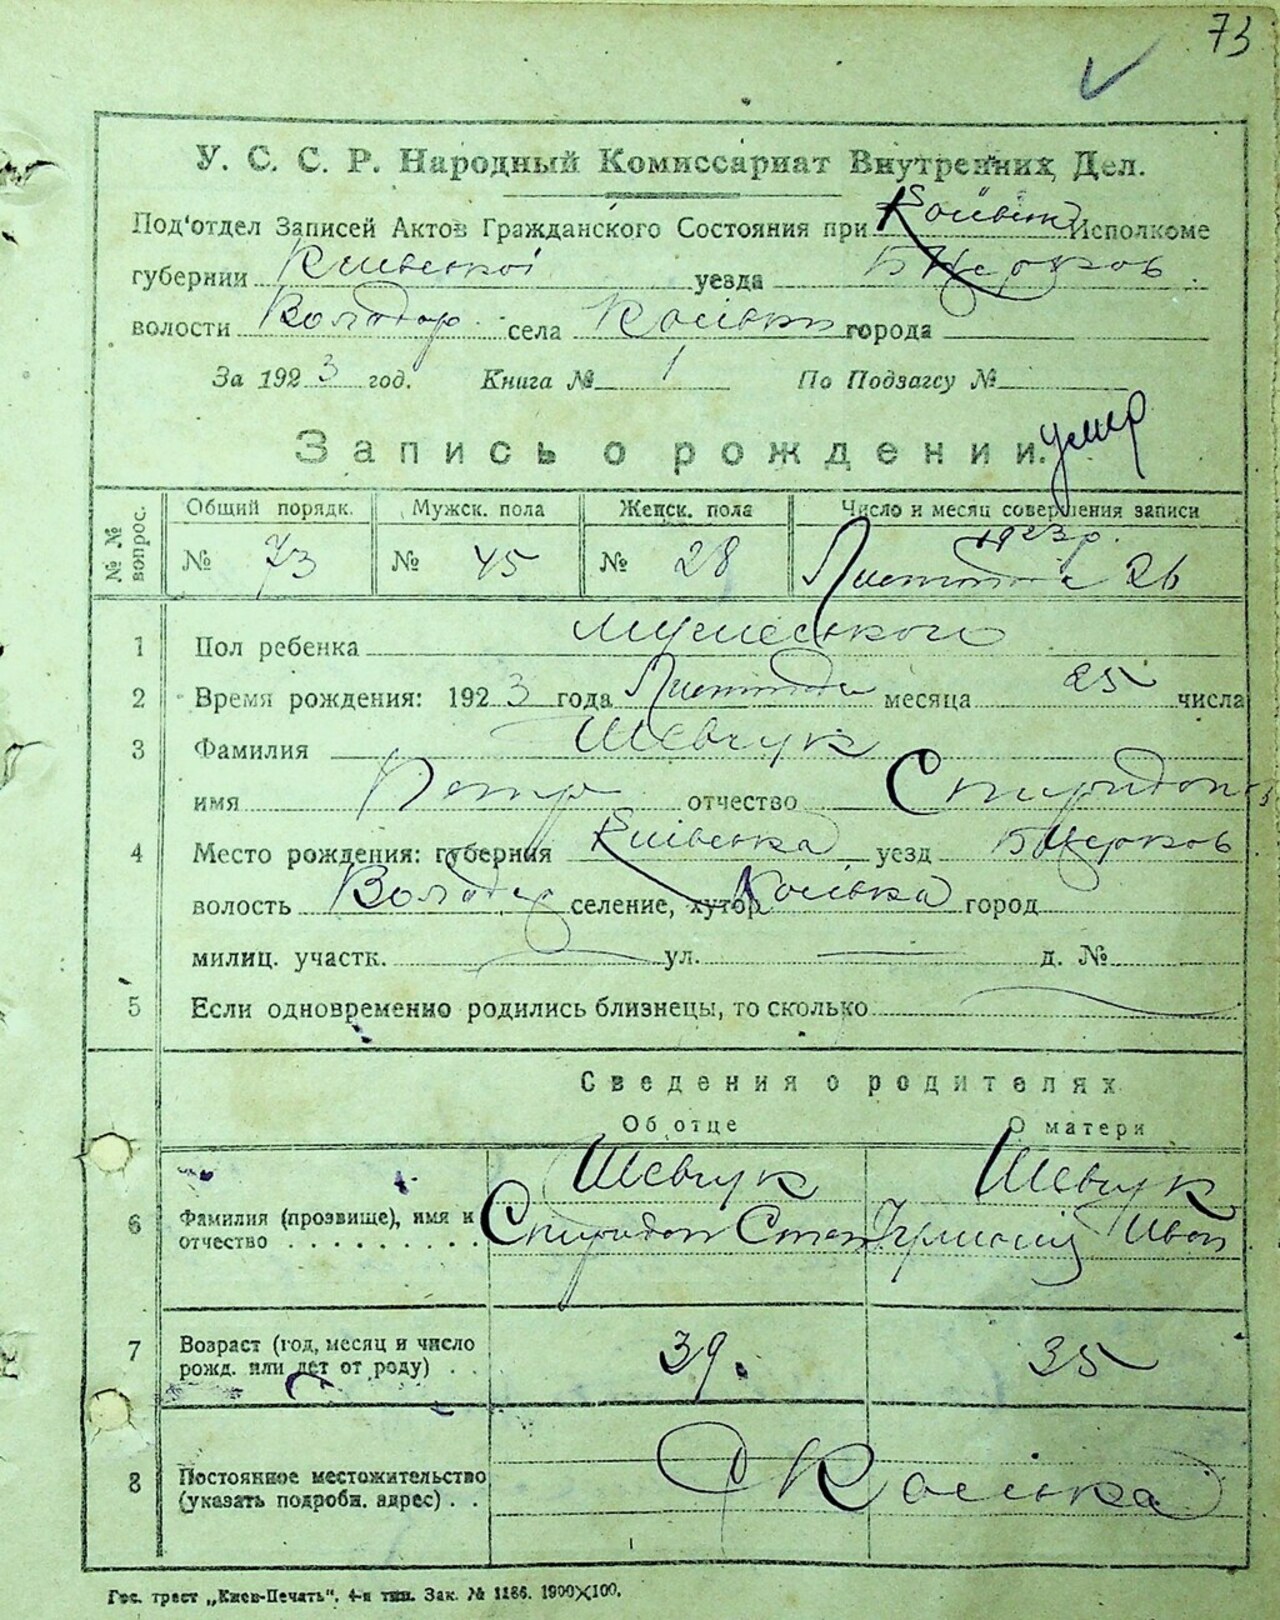 73
У. С. С. Р. Народный Комиссариат Внутренних Дел.
Под'отдел Записей Актов Гражданского Состояния при Исполкоме
губернии Київської уезда Б Церков
волости Володар. села города
За 1923 год. Книга № 1 По Подзагсу №
Запись о рождении. умер
№№ вопрос. Общий порядк. Мужск. пола Женск. пола Число и месяц совершения записи
№ 73 № 45 № 28 1923 р. Листопада 26
1 Пол ребенка мужеського
2 Время рождения: 1923 года Листопада месяца 25 числа
3 Фамилия Шевчук
имя Петро отчество Спиридон
4 Место рождения: губерния Київська уезд Б Церков
волость Володар селение, хутор Косівка город
милиц. участк. ул. д. №
5 Если одновременно родились близнецы, то сколько
Сведения о родителях
Об отце О матери
Шевчук Шевчук
6 Фамилия (прозвище), имя и отчество Спиридон Степ Иван
7 Возраст (год, месяц и число рожд. или лет от роду) . . 39. 35
8 Постоянное местожительство (указать подробн. адрес) . . с Косівка
Гос. трест „Киев-Печать", 4-я тип. Зак. № 1186. 1900×100.